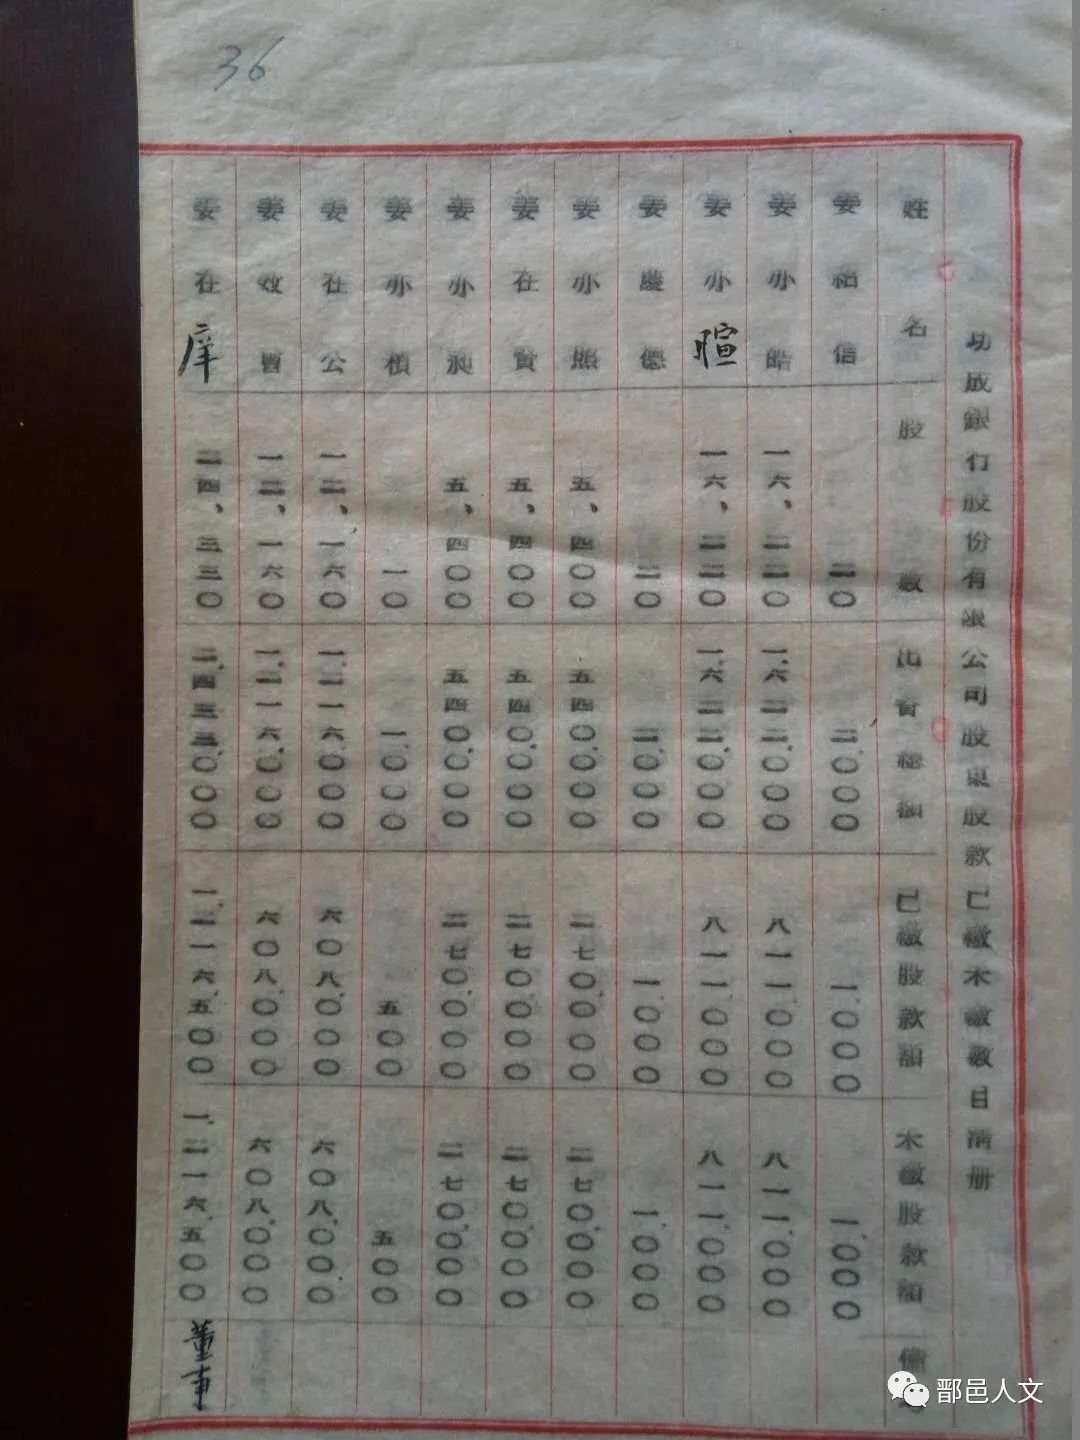 36
功成銀行股份有限公司股東股款已繳未繳數目清册
姓名 股數 比資總額 已繳股款額 未繳股款額 備
姜紹信 二〇 二、〇〇〇 一、〇〇〇 一、〇〇〇
姜亦皓 一六、二二〇 一、六二二、〇〇〇 八一一、〇〇〇 八一一、〇〇〇
姜亦暄 一六、二二〇 一、六二二、〇〇〇 八一一、〇〇〇 八一一、〇〇〇
姜慶德 二〇 二、〇〇〇 一、〇〇〇 一、〇〇〇
姜亦照 五、四〇〇 五四〇、〇〇〇 二七〇、〇〇〇 二七〇、〇〇〇
姜在賢 五、四〇〇 五四〇、〇〇〇 二七〇、〇〇〇 二七〇、〇〇〇
姜亦昶 五、四〇〇 五四〇、〇〇〇 二七〇、〇〇〇 二七〇、〇〇〇
姜亦楨 一〇 一、〇〇〇 五〇〇 五〇〇
姜在公 一二、一六〇 一、二一六、〇〇〇 六〇八、〇〇〇 六〇八、〇〇〇
姜效曾 一二、一六〇 一、二一六、〇〇〇 六〇八、〇〇〇 六〇八、〇〇〇
姜在庠 二四、三三〇 二、四三三、〇〇〇 一、二一六、五〇〇 一、二一六、五〇〇 董事
鄑邑人文